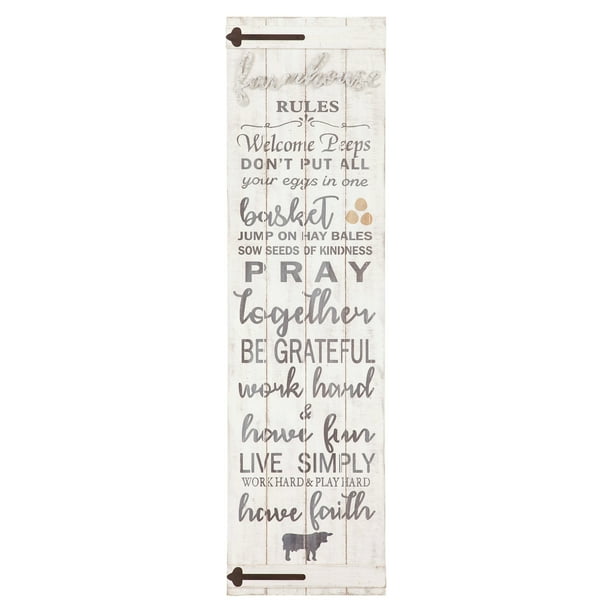 farmhouse
RULES
Welcome Peeps
DON'T PUT ALL
your eggs in one
basket
JUMP ON HAY BALES
SOW SEEDS OF KINDNESS
PRAY
together
BE GRATEFUL
work hard
&
have fun
LIVE SIMPLY
WORK HARD & PLAY HARD
have faith